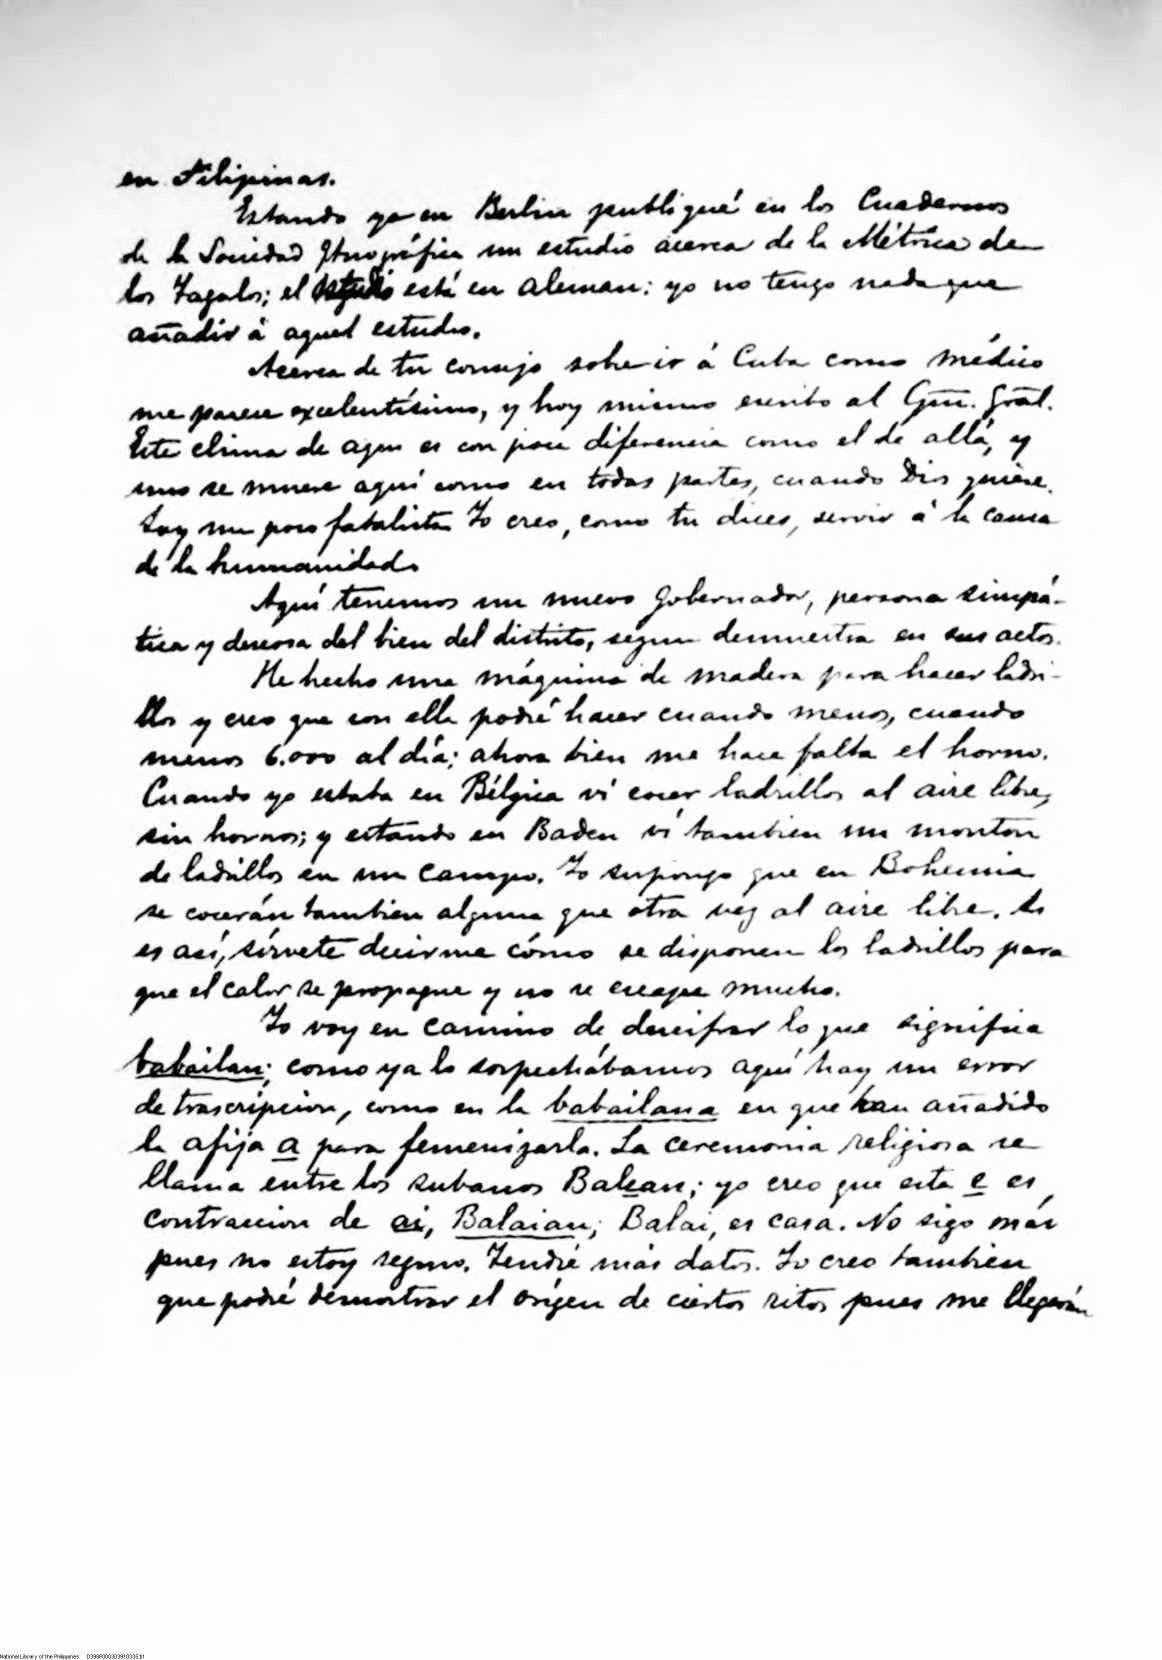 en Filipinas.
Estando yo en Berlin publiqué en los Cuadernos
de la Sociedad Etnográfica un estudio acerca de la Métrica de
los Tagalos; el está en aleman: yo no tengo nada que
añadir á aquel estudio.
Acerca de tu consejo sobre ir á Cuba como médico
me parece excelentísimo, y hoy mismo escribo al Gral.
Este clima de aqui es con poca diferencia como el de allá, y
uno se muere aquí como en todas partes, cuando Dios quiere.
Soy un poco fatalista Yo creo, como tu dices, servir á la causa
de la humanidad.
Aquí tenemos un nuevo Gobernador, persona simpá-
tica y deseosa del bien del distrito, segun demuestra en sus actos.
He hecho una máquina de madera para hacer ladri-
llos y creo que con ella podré hacer cuando menos, cuando
menos 6.000 al día; ahora bien me hace falta el horno.
Cuando yo estaba en Bélgica ví cocer ladrillos al aire libre,
sin hornos; y estando en Baden ví tambien un monton
de ladrillos en un campo. Yo supongo que en Bohemia
se cocerán tambien alguna que otra vez al aire libre. Si
es así, sírvete decirme cómo se disponen los ladrillos para
que el calor se propague y no se escape mucho.
Yo voy en camino de descifrar lo que significa
babailan; como ya lo sospechábamos aquí hay un error
de trascripcion, como en la babailana en que han añadido
la afija a para femenizarla. La ceremonia religiosa se
llama entre los subanos Balean; yo creo que esta e es
contraccion de ai, Balaian; Balai, es casa. No sigo más
pues no estoy seguro. Tendré más datos. Yo creo tambien
que podré demostrar el orígen de ciertos ritos pues me llegarán
National Library of the Philippines